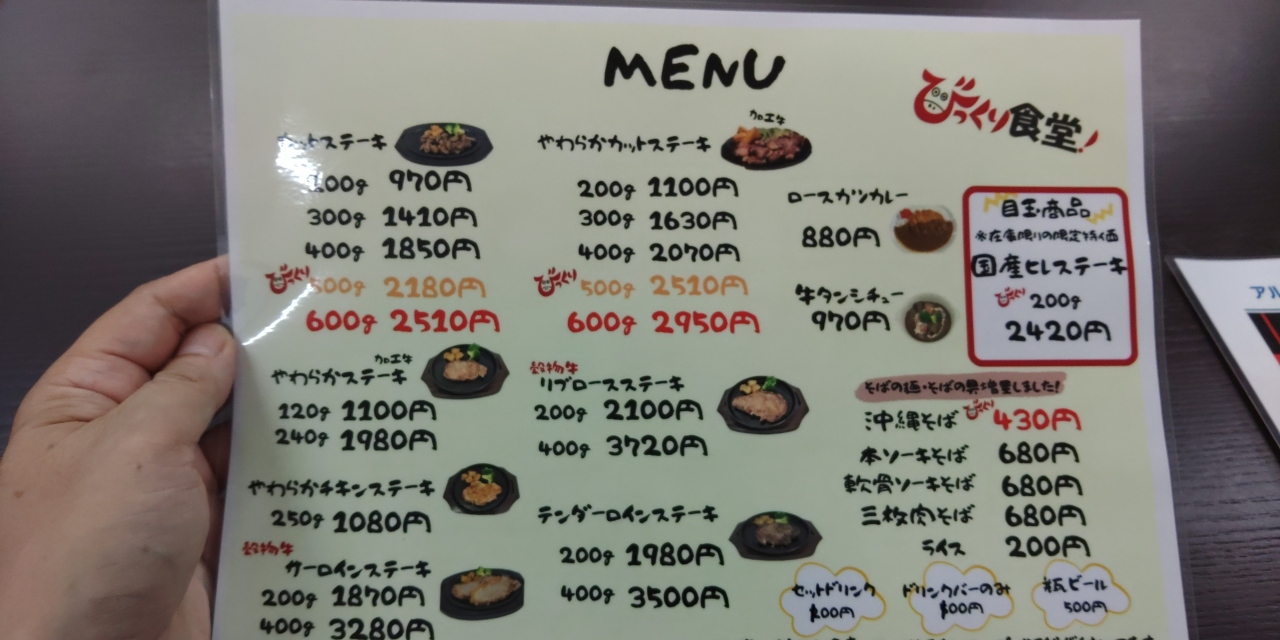 MENU
びっくり食堂!
カットステーキ
200g 970円
300g 1410円
400g 1850円
びっくり 500g 2180円
600g 2510円
加工牛
やわらかカットステーキ
200g 1100円
300g 1630円
400g 2070円
びっくり 500g 2510円
600g 2950円
ロースカツカレー
880円
牛タンシチュー
970円
目玉商品
※在庫限りの限定特価
国産ヒレステーキ
びっくり 200g
2420円
加工牛
やわらかステーキ
120g 1100円
240g 1980円
やわらかチキンステーキ
250g 1080円
穀物牛
サーロインステーキ
200g 1870円
400g 3280円
穀物牛
リブロースステーキ
200g 2100円
400g 3720円
テンダーロインステーキ
200g 1980円
400g 3500円
そばの麺・そばの具増量しました!
沖縄そば びっくり 430円
本ソーキそば 680円
軟骨ソーキそば 680円
三枚肉そば 680円
ライス 200円
セットドリンク
ドリンクバーのみ
瓶ビール
500円
アル